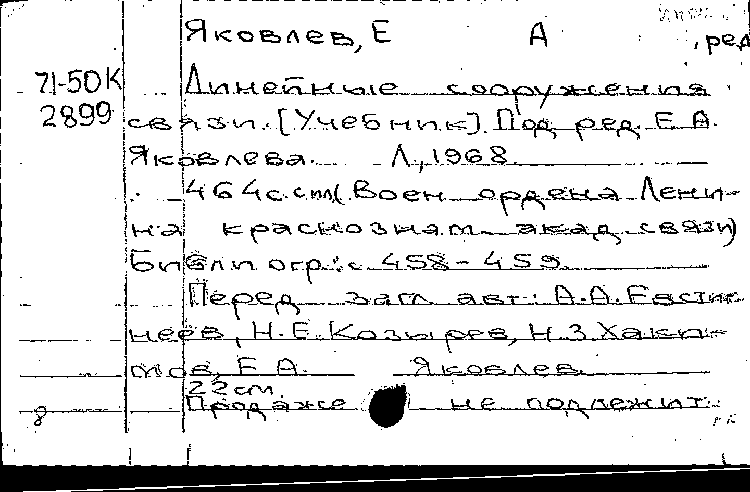 Яковлев, Е А , ред
71-50К Линейные сооружения
2899 связи. [Учебник]. Под ред. Е. А.
Яковлева. Л., 1968
464 с. с ил. (Воен. ордена Лени-
на краснознам. акад. связи)
Библиогр.: с. 458-459
Перед загл. авт.: А.А. Евстиг-
неев, Н.Е. Козырев, Н.З. Хаки-
мов, Е. А. Яковлев.
22 см.
8 Продаже не подлежит.